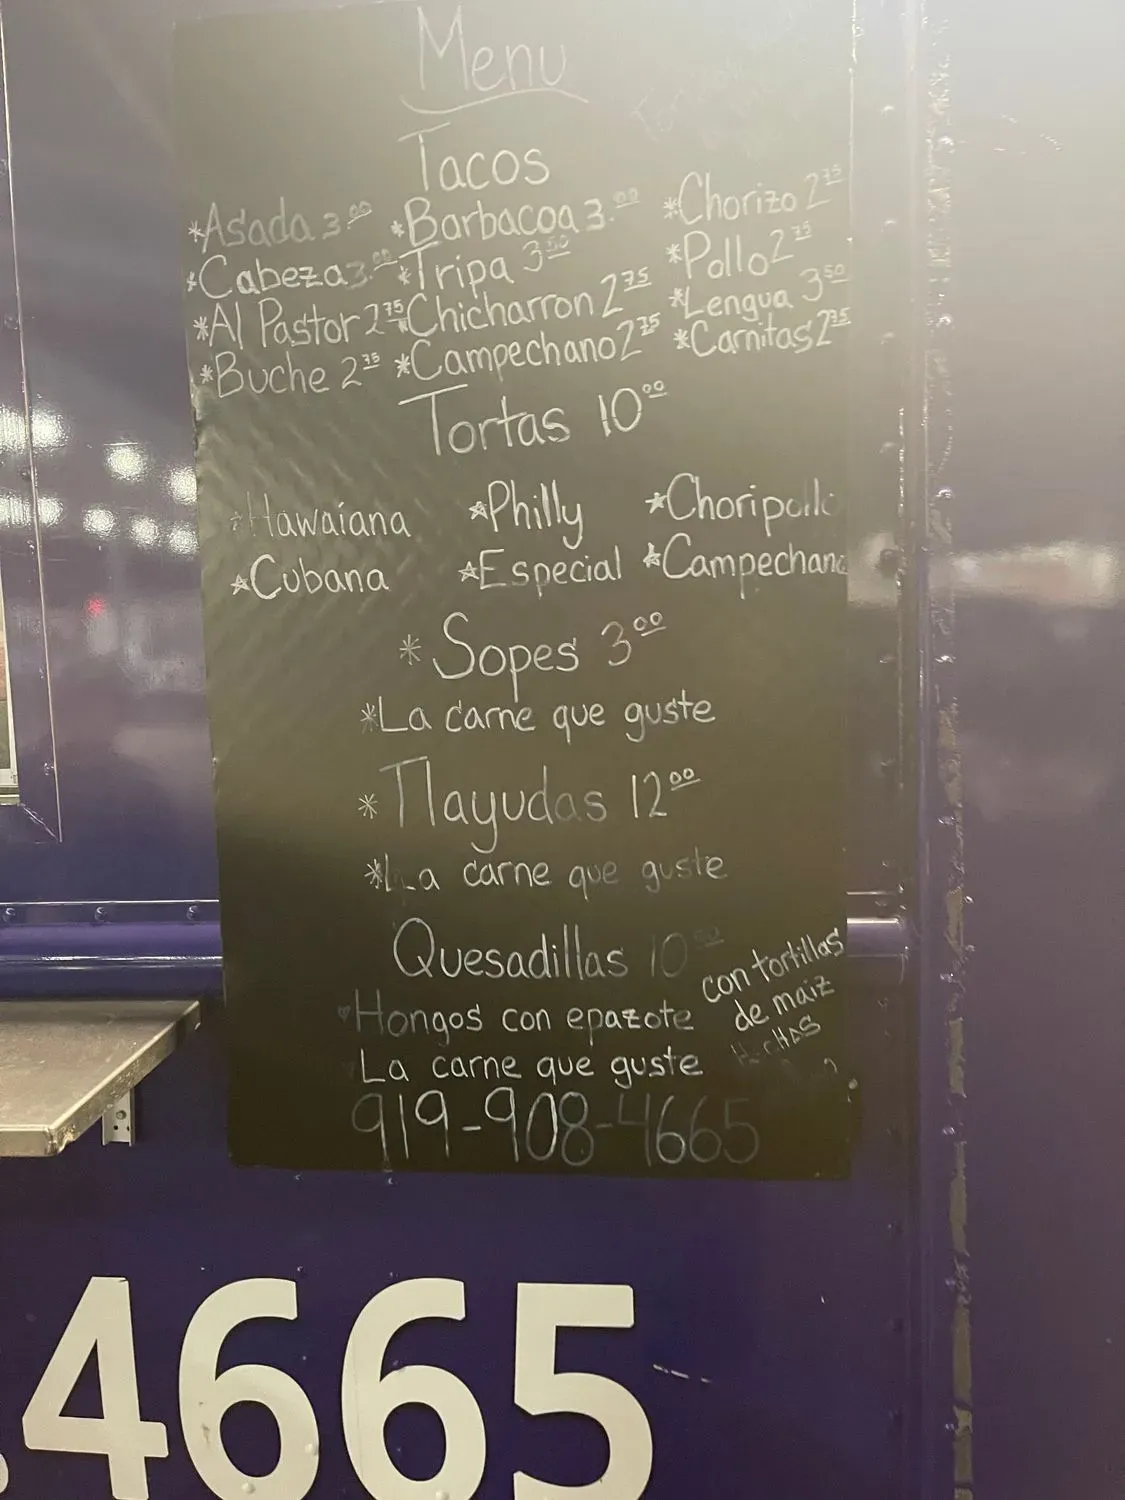 Menu
Tacos
*Asada 3.00 *Barbacoa 3.00 *Chorizo 2.75
*Cabeza 3.00 *Tripa 3.50 *Pollo 2.75
*Al Pastor 2.75 *Chicharron 2.75 *Lengua 3.50
*Buche 2.75 *Campechano 2.75 *Carnitas 2.75
Tortas 10.00
*Hawaiana *Philly *Choripollo
*Cubana *Especial *Campechana
*Sopes 3.00
*La carne que guste
*Tlayudas 12.00
*La carne que guste
Quesadillas 10.00
con tortillas
de maiz
Hongos con epazote
La carne que guste
919-908-4665
.4665